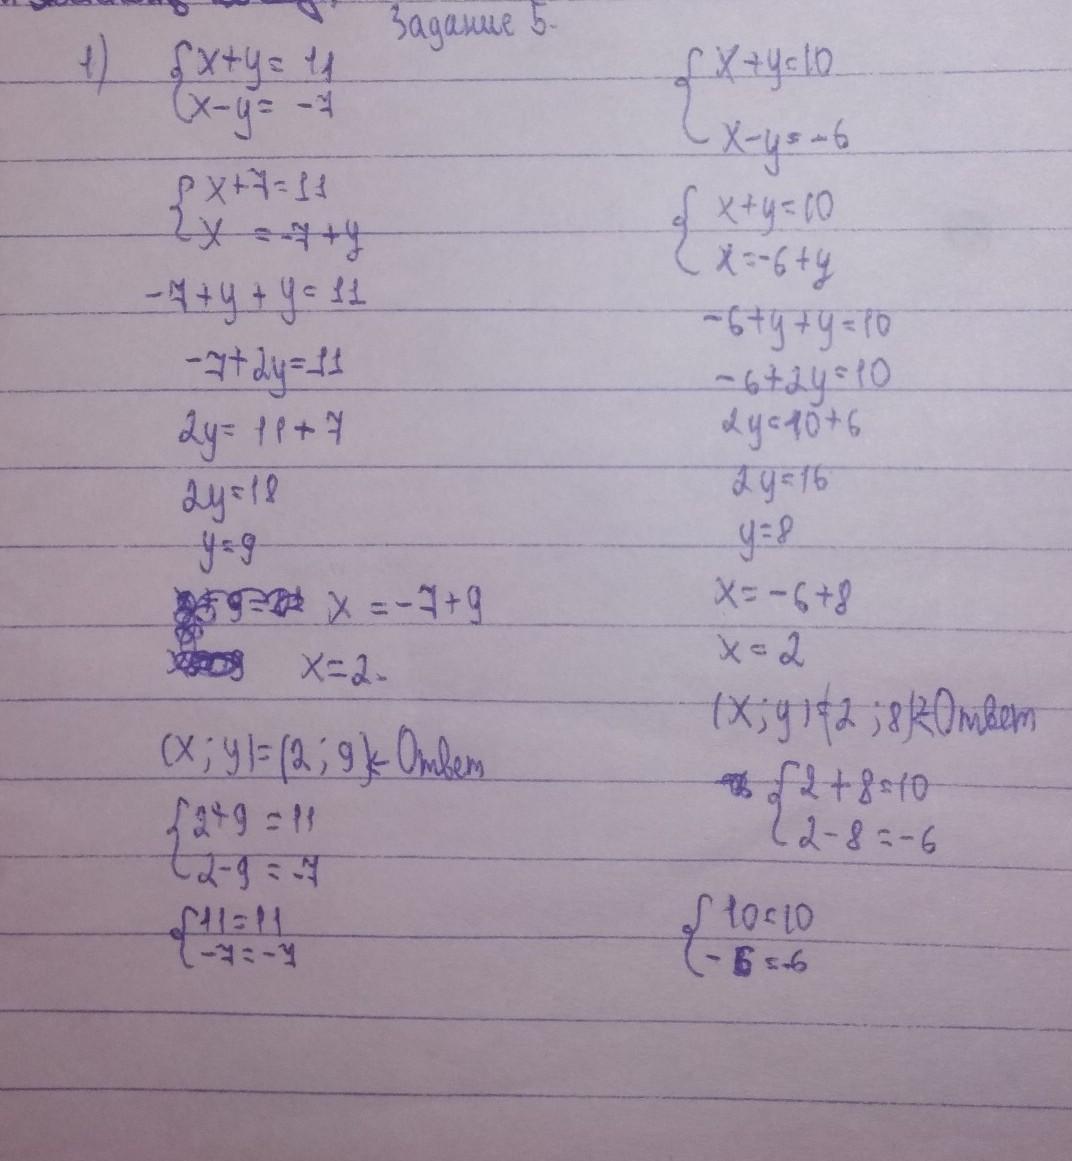 Задание 5.
1)
x+y= 11
x-y= -7
x+7=11
x =-7+y
-7+y+y=11
-7+2y=11
2y= 11+7
2y=18
y=9
x =-7+9
x=2.
(x;y)=(2;9)<- Ответ
2+9 =11
2-9 = -7
11=11
-7=-7
x+y=10
x-y=-6
x+y=10
x=-6+y
-6+y+y=10
-6+2y=10
2y=10+6
2y=16
y=8
x=-6+8
x=2
(x;y)=(2;8)<-Ответ
2+8=10
2-8=-6
10=10
-6=-6